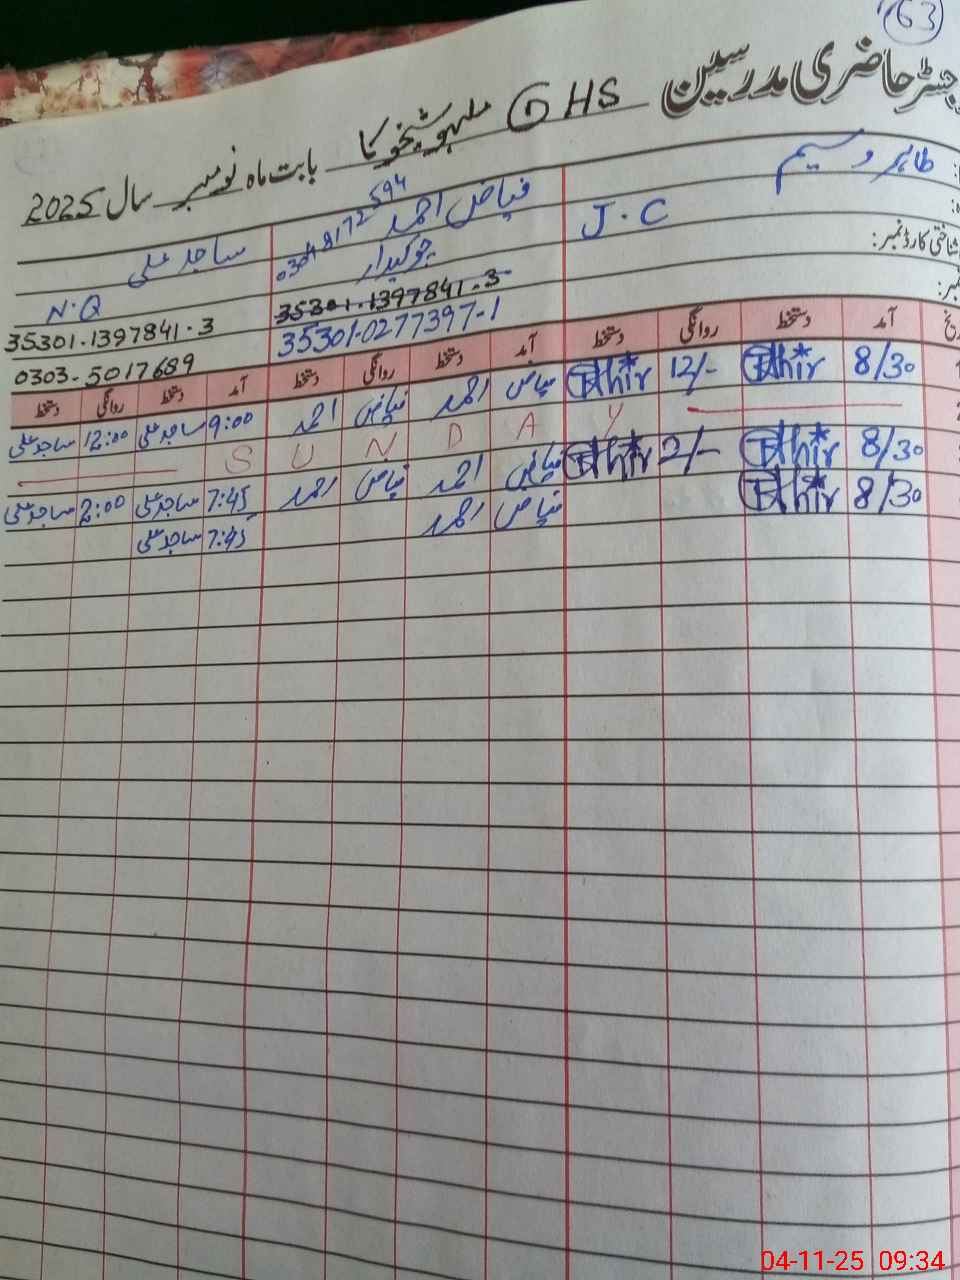 163
رجسٹر حاضری مدرسین GHS ملہو شیخو کا بابت ماہ نومبر سال 2025
طاہر وسیم فیاض احمد ساجد علی
J.C چوکیدار N.Q
شناختی کارڈ نمبر: 35301.1397841.3 35301.1397841.3
35301-0277397-1 0303-5017689
آمد دستخط روانگی دستخط آمد دستخط روانگی دستخط آمد دستخط روانگی دستخط
8/30 Tahir 12/- Tahir فیاض احمد فیاض احمد 9:00 ساجد علی 12:00 ساجد علی
SUNDAY
8/30 Tahir 2/- Tahir فیاض احمد فیاض احمد 7:45 ساجد علی 2:00 ساجد علی
8/30 Tahir فیاض احمد 7:45 ساجد علی
04-11-25 09:34